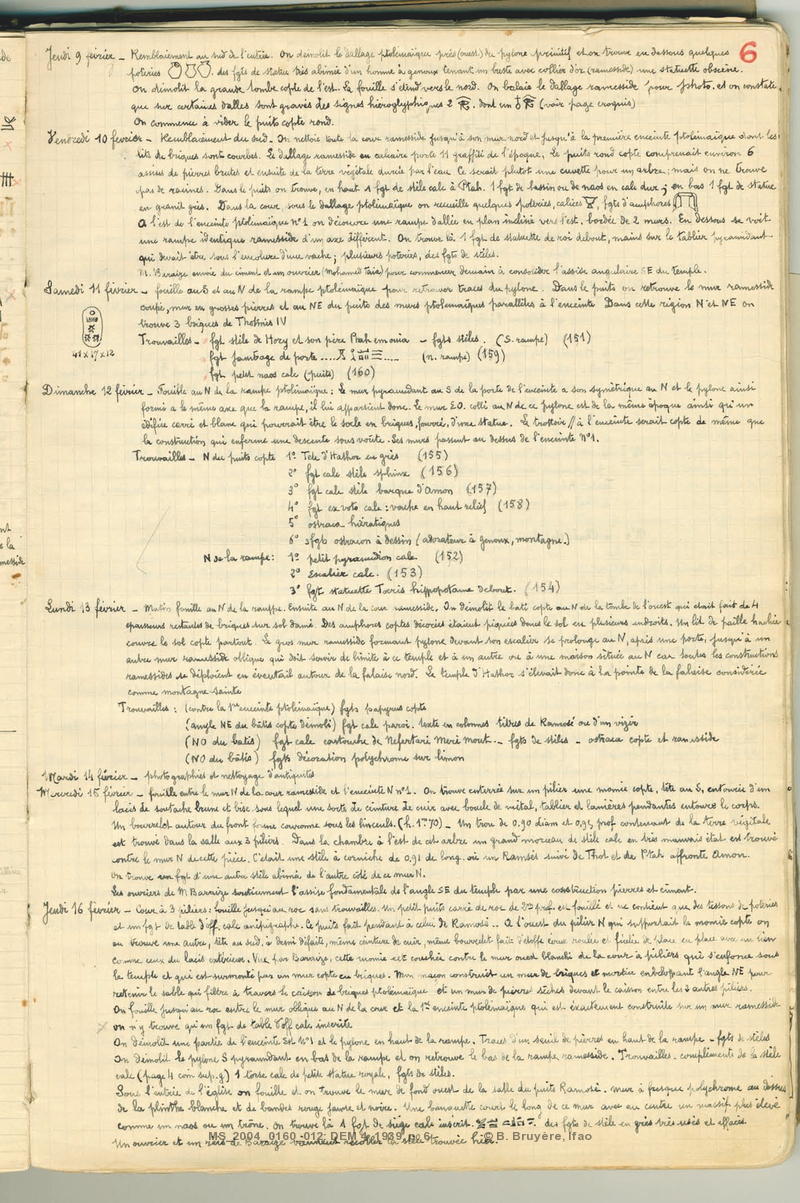 6
Jeudi 9 février – Remblaiement au sud de l'entrée. On démolit le dallage ptolémaïque près (ouest) du pylone primitif et on trouve en dessous quelques
poteries des fgts de statue très abimée d'un homme à genoux tenant un buste avec collier d'or (ramesside) une statuette obscène.
On démolit la grande tombe copte de l'est. La fouille s'étend vers le nord. On balaie le dallage ramesside pour photo. et on constate
que sur certaines dalles sont gravés des signes hiéroglyphiques 2 dont un (voir page croquis)
On commence à vider le puits copte rond.
Vendredi 10 février – Remblaiement du sud. On nettoie toute la cour ramesside jusqu'à son mur nord et jusqu'à la première enceinte ptolémaique dont les
lits de briques sont courbes. Le dallage ramesside en calcaire porte 11 graffiti de l'époque. Le puits rond copte comprenait environ 6
assises de pierres brutes et ensuite de la terre végétale durcie par l'eau. Ce serait plutot une cuvette pour un arbre; mais on ne trouve
pas de racines. Dans le puits on trouve, en haut 1 fgt de stèle calc à Ptah. 1 fgt de bassin ou de naos en calc dur; en bas 1 fgt de statue
en granit gris. Dans la cour, sous le dallage ptolémaïque on recueille quelques poteries, calices, fgts d'amphores
A l'est de l'enceinte ptolémaïque n°1 on découvre une rampe dallée en plan incliné vers l'est. bordée de 2 murs. En dessous se voit
une rampe identique ramesside d'un axe différent. On trouve là 1 fgt de statuette de roi debout, mains sur le tablier pyramidant
qui devait être sous l'encolure d'une vache; plusieurs poteries, des fgts de stèles.
M. Baraize envoie du ciment et un ouvrier (Mohamed) pour commencer demain à consolider l'assise angulaire SE du temple.
Samedi 11 février – fouille au S et au N de la rampe ptolémaïque pour retrouver traces du pylone. Dans le puits on retrouve le mur ramesside
coupé, mur en grosses pierres et au NE du puits des murs ptolémaïques parallèles à l'enceinte Dans cette région N et NE on
trouve 3 briques de Thotmès IV
41 x 17 x 12
Trouvailles – fgt stèle de Hory et son père Ptah em ouia – fgts stèles. (S. rampe) (151)
fgt jambage de porte ..... (n. rampe) (159)
fgt petit naos calc (puits) (160)
Dimanche 12 février – Fouille au N de la rampe ptolémaïque: Le mur pyramidant au S de la porte de l'enceinte a son symétrique au N et le pylone ainsi
formé a le même axe que la rampe, il lui appartient donc. Le mur EO. collé au N de ce pylone est de la même époque ainsi qu'un
édifice carré et blanc qui pourrait être le socle en briques, fourré, d'une statue. Le trottoir // à l'enceinte serait copte de même que
la construction qui enferme une descente sous voute. Ses murs passent au dessus de l'enceinte N°1.
Trouvailles – N du puits copte 1° Tete d'Hathor en grès (155)
2° fgt calc stèle sphinx (156)
3° fgt calc stèle barque d'Amon (157)
4° fgt ex voto calc: vache en haut relief (158)
5° ostraca hiératiques
6° 3 fgts ostracon à dessin (adorateur à genoux, montagne.)
N de la rampe: 1° petit pyramidion calc. (152)
2° Escalier calc. (153)
3° fgt statuette Toeris hippopotame debout. (154)
Lundi 13 février – Matin fouille au N de la rampe. Ensuite au N de la cour ramesside. On démolit le bati copte au N de la tombe de l'ouest qui était fait de 4
épaisseurs restaurées de briques sur sol damé. Des amphores coptes décorées étaient piquées dans le sol en plusieurs endroits. Un lit de paille hachée
couvre le sol copte partout. Le gros mur ramesside formant pylone devant son escalier se prolonge au N, après une porte, jusqu'à un
autre mur ramesside oblique qui doit servir de limite à ce temple et à un autre ou à une maison située au N car toutes les constructions
ramessides se déploient en éventail autour de la falaise nord. Le temple d'Hathor s'élevait donc à la pointe de la falaise considérée
comme montagne sainte
Trouvailles: (contre la 1re enceinte ptolémaïque) fgts papyrus copte
(angle NE du bâtis copte démoli) fgt calc paroi. texte en colonnes titres de Ramosé ou d'un vizir
(NO du batis) fgt calc cartouche de Nefertari Meri Mout. – fgts de stèles – ostraca copte et ramesside
(NO du bâtis) fgts décoration polychrome sur limon
Mardi 14 février – photographies et nettoyage d'antiquités
Mercredi 15 février – fouille entre le mur N de la cour ramesside et l'enceinte N n°1. On trouve enterrée sur un pilier une momie copte, tête au S, entourée d'un
lacis de soutache brune et bise sous lequel une sorte de ceinture de cuir avec boucle de métal, tablier et lanières pendantes entoure le corps.
Un bourrelet autour du front forme couronne sous les linceuls. (h. 1m70) – Un trou de 0,90 diam et 0,95 prof contenant de la terre végétale
est trouvé dans la salle aux 3 piliers. Dans la chambre à l'est de cet arbre un grand morceau de stèle calc en très mauvais état est trouvé
contre le mur N de cette pièce. C'était une stèle à corniche de 0,91 de long. où un Ramsès suivi de Thot et de Ptah affronte Amon.
On trouve un fgt d'une autre stèle abimée de l'autre côté de ce mur N.
Les ouvriers de M. Baraize soutiennent l'assise fondamentale de l'angle SE du temple par une construction pierres et ciment.
Jeudi 16 février – Cour à 3 piliers: fouille jusqu'au roc sans trouvailles. Un petit puits carré de roc de 2m prof. est fouillé et ne contient que des tessons de poteries
et un fgt de table d'off. calc anépigraphe. Ce puits fait pendant à celui de Ramosé.. A l'ouest du pilier N qui supportait la momie copte on
en trouve une autre, tête au sud, à demi défaite, même ceinture de cuir, même bourrelet fait d'étoffe roulée et ficelée de place en place avec un lien
comme ceux du lacis extérieur. Vue par Baraize, cette momie est couchée contre le mur ouest blanchi de la cour à piliers qui s'enfonce sous
le temple et qui est surmonté par un mur copte en briques. Mon maçon construit un mur de briques et mortier enveloppant l'angle NE pour
retenir le sable qui filtre à travers le caisson de briques ptolémaïque et un mur de pierres sèches devant le caisson entre les 2 autres piliers.
On fouille jusqu'au roc entre le mur oblique au N de la cour et la 1re enceinte ptolémaïque qui est exactement construite sur un mur ramesside
on n'y trouve qu'un fgt de table d'off calc inscrite
On démolit une partie de l'enceinte Est N°1 et le pylone en haut de la rampe. Traces d'un seuil de pierres en haut de la rampe – fgts de stèles
On démolit le pylone S pyramidant en bas de la rampe et on retrouve le bas de la rampe ramesside. Trouvailles. compléments de la stèle
calc (page 4 coin sup. g) 1 torse calc de petite statue royale, fgts de stèles.
Sous l'entrée de l'église on fouille et on trouve le mur de fond ouest de la salle du puits Ramosé. mur à fresque polychrome au dessus
de la plinthe blanche et de bandes rouge jaune et noire. Une banquette court le long de ce mur avec au centre un massif plus élevé
comme un naos ou un trône. On trouve là 1 fgt de siège calc inscrit. des fgts de stèle en grès très usés et effacés.
Un ouvrier et un reis de Baraize viennent recoller la stèle trouvée hier.
MS_2004_0160 -012; DEM 4, 1939, p. 6; © B. Bruyère, Ifao